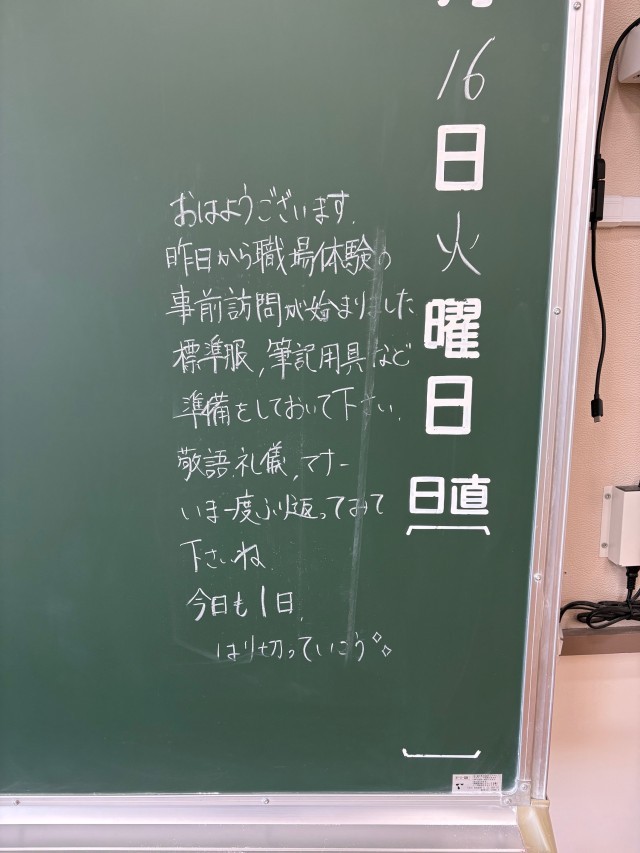 16
日
火
曜
日
日直
おはようございます.
昨日から職場体験の
事前訪問が始まりました
標準服,筆記用具など
準備をしておいて下さい.
敬語,礼儀,マナー
いま一度ふり返ってみて
下さいね.
今日も1日,
はり切っていこう